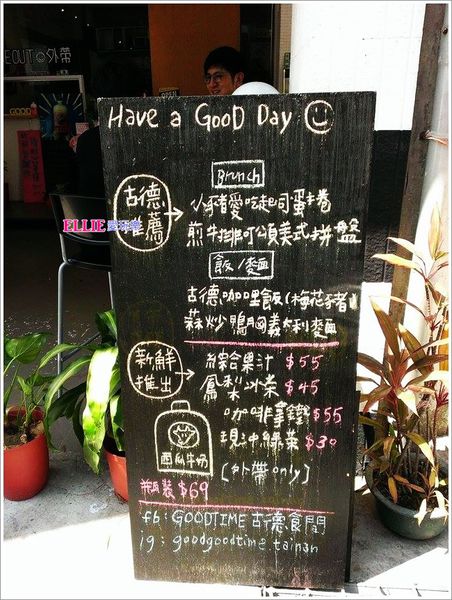 TAKE OUT 外帶
OPEN
Have a GooD Day
Brunch
古德推薦
小豬愛吃起司蛋捲
煎牛排可頌美式拼盤
飯/麵
古德咖哩飯(梅花豬)
蒜炒鴨胸義大利麵
新鮮推出
綜合果汁 $55
鳳梨冰茶 $45
咖啡拿鐵 $55
現沖綠茶 $30
[外帶only]
西瓜牛奶
瓶裝 $69
fb: GOODTIME 古德食間
ig: goodgoodtime.tainan